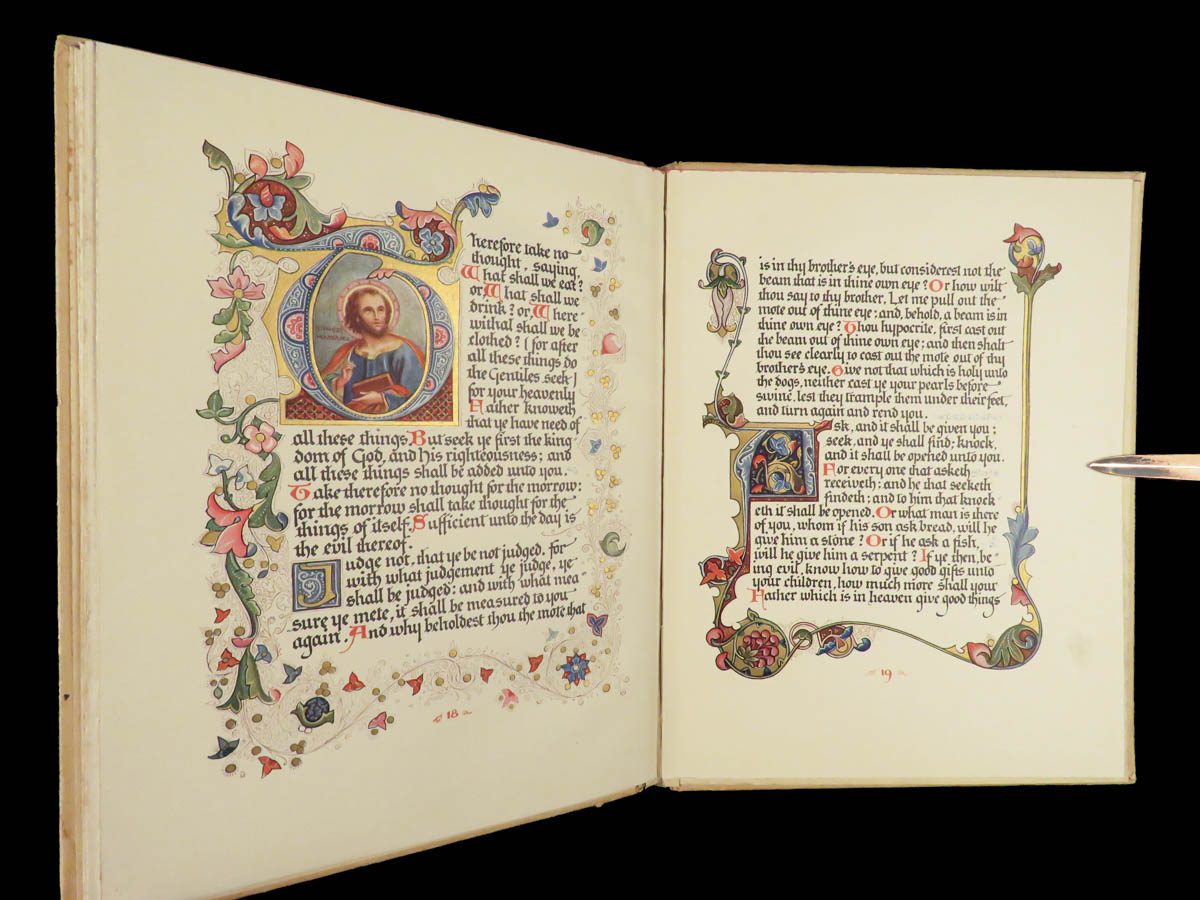 Therefore take no
thought, saying,
What shall we eat?
or, What shall we
drink? or, Where
withal shall we be
clothed? (for after
all these things do
the Gentiles seek)
for your heavenly
Father knoweth
that ye have need of
all these things. But seek ye first the king
dom of God, and His righteousness; and
all these things shall be added unto you.
Take therefore no thought for the morrow:
for the morrow shall take thought for the
things of itself. Sufficient unto the day is
the evil thereof.
Judge not, that ye be not judged. for
with what judgement ye judge, ye
shall be judged: and with what mea
sure ye mete, it shall be measured to you
again. And why beholdest thou the mote that
18
is in thy brother's eye, but considerest not the
beam that is in thine own eye? Or how wilt
thou say to thy brother, Let me pull out the
mote out of thine eye; and, behold, a beam is in
thine own eye? Thou hypocrite, first cast out
the beam out of thine own eye; and then shalt
thou see clearly to cast out the mote out of thy
brother's eye. Give not that which is holy unto
the dogs, neither cast ye your pearls before
swine, lest they trample them under their feet,
and turn again and rend you.
Ask, and it shall be given you;
seek, and ye shall find; knock,
and it shall be opened unto you.
For every one that asketh
receiveth; and he that seeketh
findeth; and to him that knock
eth it shall be opened. Or what man is there
of you, whom if his son ask bread, will he
give him a stone? Or if he ask a fish,
will he give him a serpent? If ye then, be-
ing evil, know how to give good gifts unto
your children, how much more shall your
Father which is in heaven give good things
19